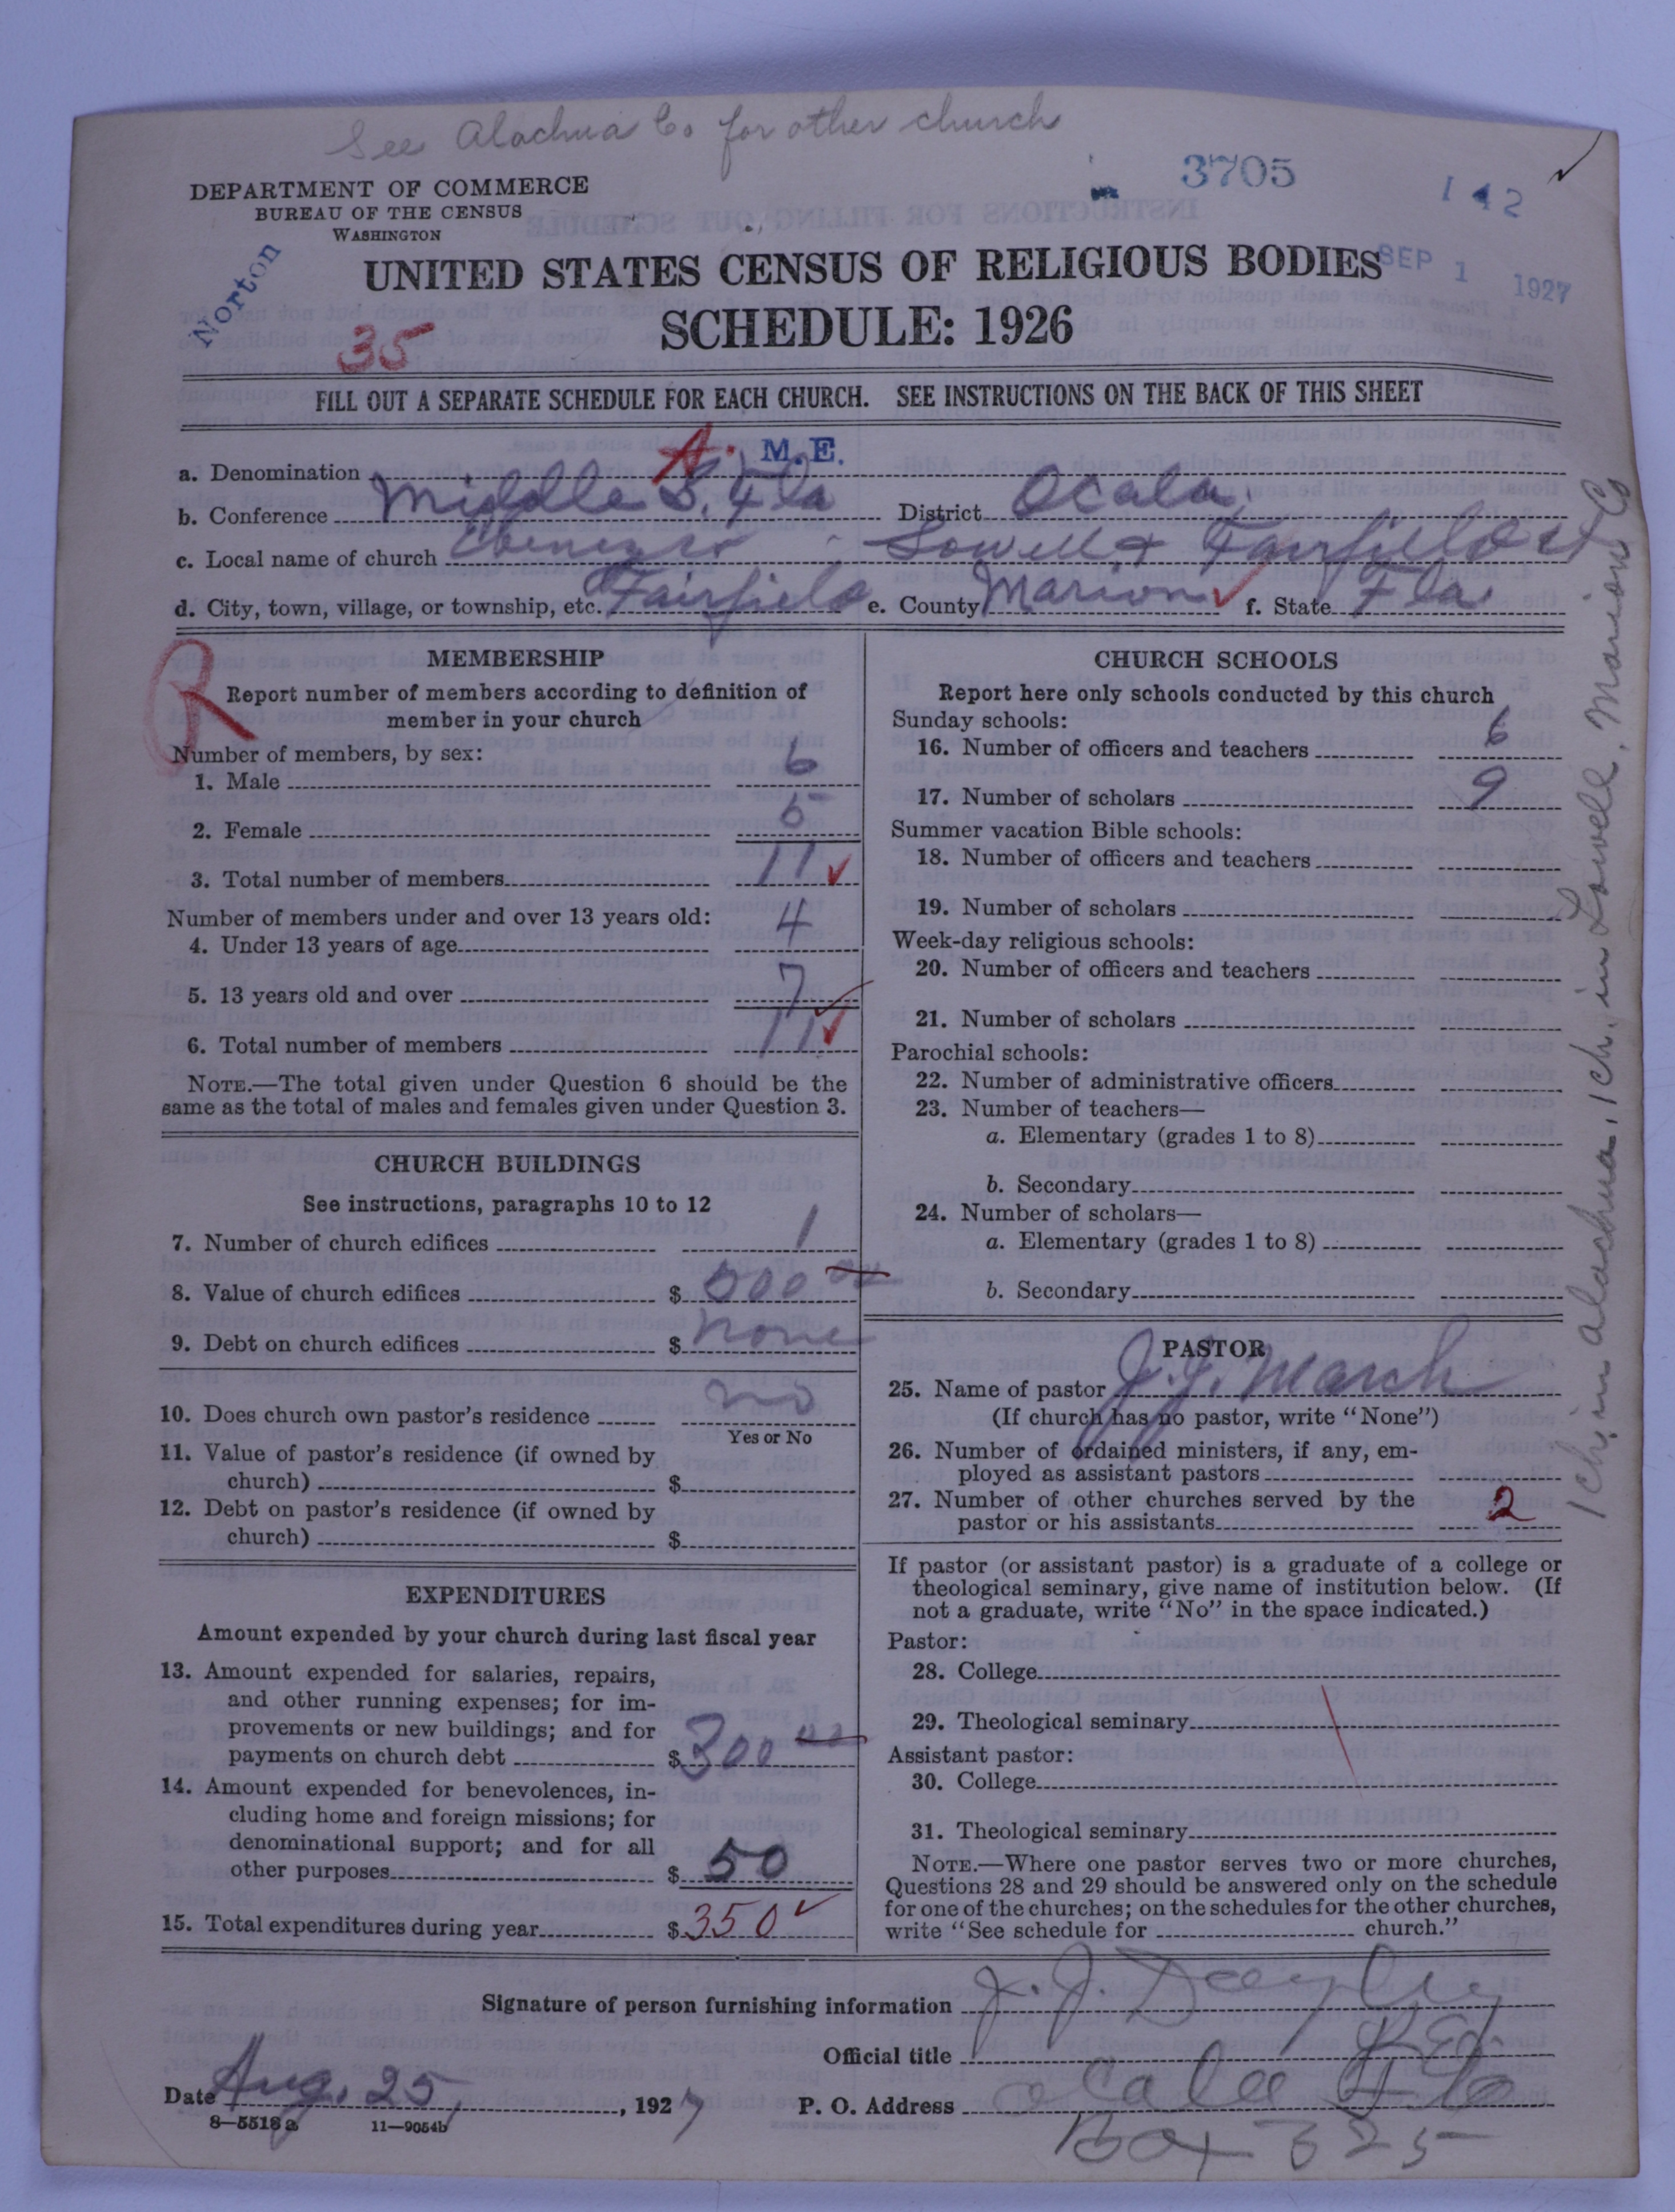 See Alachua Co for other church
DEPARTMENT OF COMMERCE
BUREAU OF THE CENSUS
WASHINGTON
3705
142
Norton
SEP 1 1927
UNITED STATES CENSUS OF RELIGIOUS BODIES
SCHEDULE: 1926
35
FILL OUT A SEPARATE SCHEDULE FOR EACH CHURCH. SEE INSTRUCTIONS ON THE BACK OF THIS SHEET
a. Denomination A. M. E.
b. Conference Middle Fla District Ocala
c. Local name of church Ebenezer Lowell & Fairfield
d. City, town, village, or township, etc. Fairfield e. County Marion f. State Fla.
R
MEMBERSHIP
Report number of members according to definition of
member in your church
Number of members, by sex:
1. Male 6
2. Female 5
3. Total number of members 11
Number of members under and over 13 years old:
4. Under 13 years of age 4
5. 13 years old and over 7
6. Total number of members 11
NOTE.—The total given under Question 6 should be the
same as the total of males and females given under Question 3.
CHURCH BUILDINGS
See instructions, paragraphs 10 to 12
7. Number of church edifices 1
8. Value of church edifices $ 500 00
9. Debt on church edifices $ none
10. Does church own pastor's residence no
Yes or No
11. Value of pastor's residence (if owned by
church) $
12. Debt on pastor's residence (if owned by
church) $
EXPENDITURES
Amount expended by your church during last fiscal year
13. Amount expended for salaries, repairs,
and other running expenses; for im-
provements or new buildings; and for
payments on church debt $ 300 00
14. Amount expended for benevolences, in-
cluding home and foreign missions; for
denominational support; and for all
other purposes $ 50
15. Total expenditures during year $ 350
CHURCH SCHOOLS
Report here only schools conducted by this church
Sunday schools:
16. Number of officers and teachers 6
17. Number of scholars 9
Summer vacation Bible schools:
18. Number of officers and teachers
19. Number of scholars
Week-day religious schools:
20. Number of officers and teachers
21. Number of scholars
Parochial schools:
22. Number of administrative officers
23. Number of teachers—
a. Elementary (grades 1 to 8)
b. Secondary
24. Number of scholars—
a. Elementary (grades 1 to 8)
b. Secondary
PASTOR
25. Name of pastor J. J. March
(If church has no pastor, write "None")
26. Number of ordained ministers, if any, em-
ployed as assistant pastors
27. Number of other churches served by the
pastor or his assistants 2
If pastor (or assistant pastor) is a graduate of a college or
theological seminary, give name of institution below. (If
not a graduate, write "No" in the space indicated.)
Pastor:
28. College
29. Theological seminary
Assistant pastor:
30. College
31. Theological seminary
NOTE.—Where one pastor serves two or more churches,
Questions 28 and 29 should be answered only on the schedule
for one of the churches; on the schedules for the other churches,
write "See schedule for church."
1 ch. in Alachua, 1 ch. in Lowell, Marion Co
Signature of person furnishing information J. J.
Official title P. E.
Date Aug. 25, 1927 P. O. Address Ocala Fla
Box 325
8—5518a 11—9054b